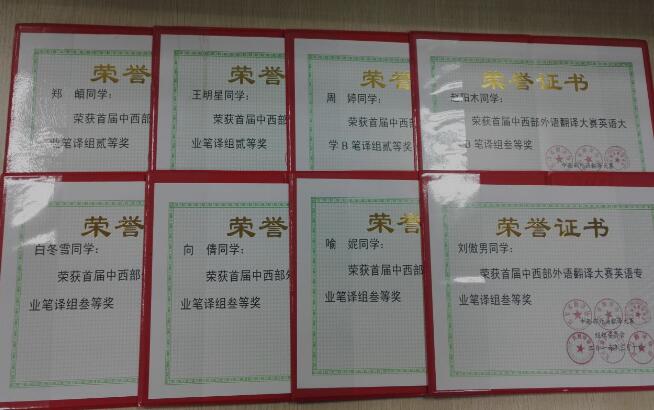 荣誉
郑 皡同学：
荣获首届中西部
业笔译组贰等奖
荣誉
王明星同学：
荣获首届中西部
业笔译组贰等奖
荣誉
周 婷同学：
荣获首届中西部
学B笔译组贰等奖
荣誉证书
赵阳木同学：
荣获首届中西部外语翻译大赛英语大
B笔译组叁等奖
中西部外语翻译大赛
荣
白冬雪同学：
荣获首届中西部
业笔译组叁等奖
荣
向 倩同学：
荣获首届中西部外
业笔译组叁等奖
荣誉
喻 妮同学：
荣获首届中西部
业笔译组叁等奖
荣誉证书
刘傲男同学：
荣获首届中西部外语翻译大赛英语专
业笔译组叁等奖
中西部外语翻译大赛
组织委员会